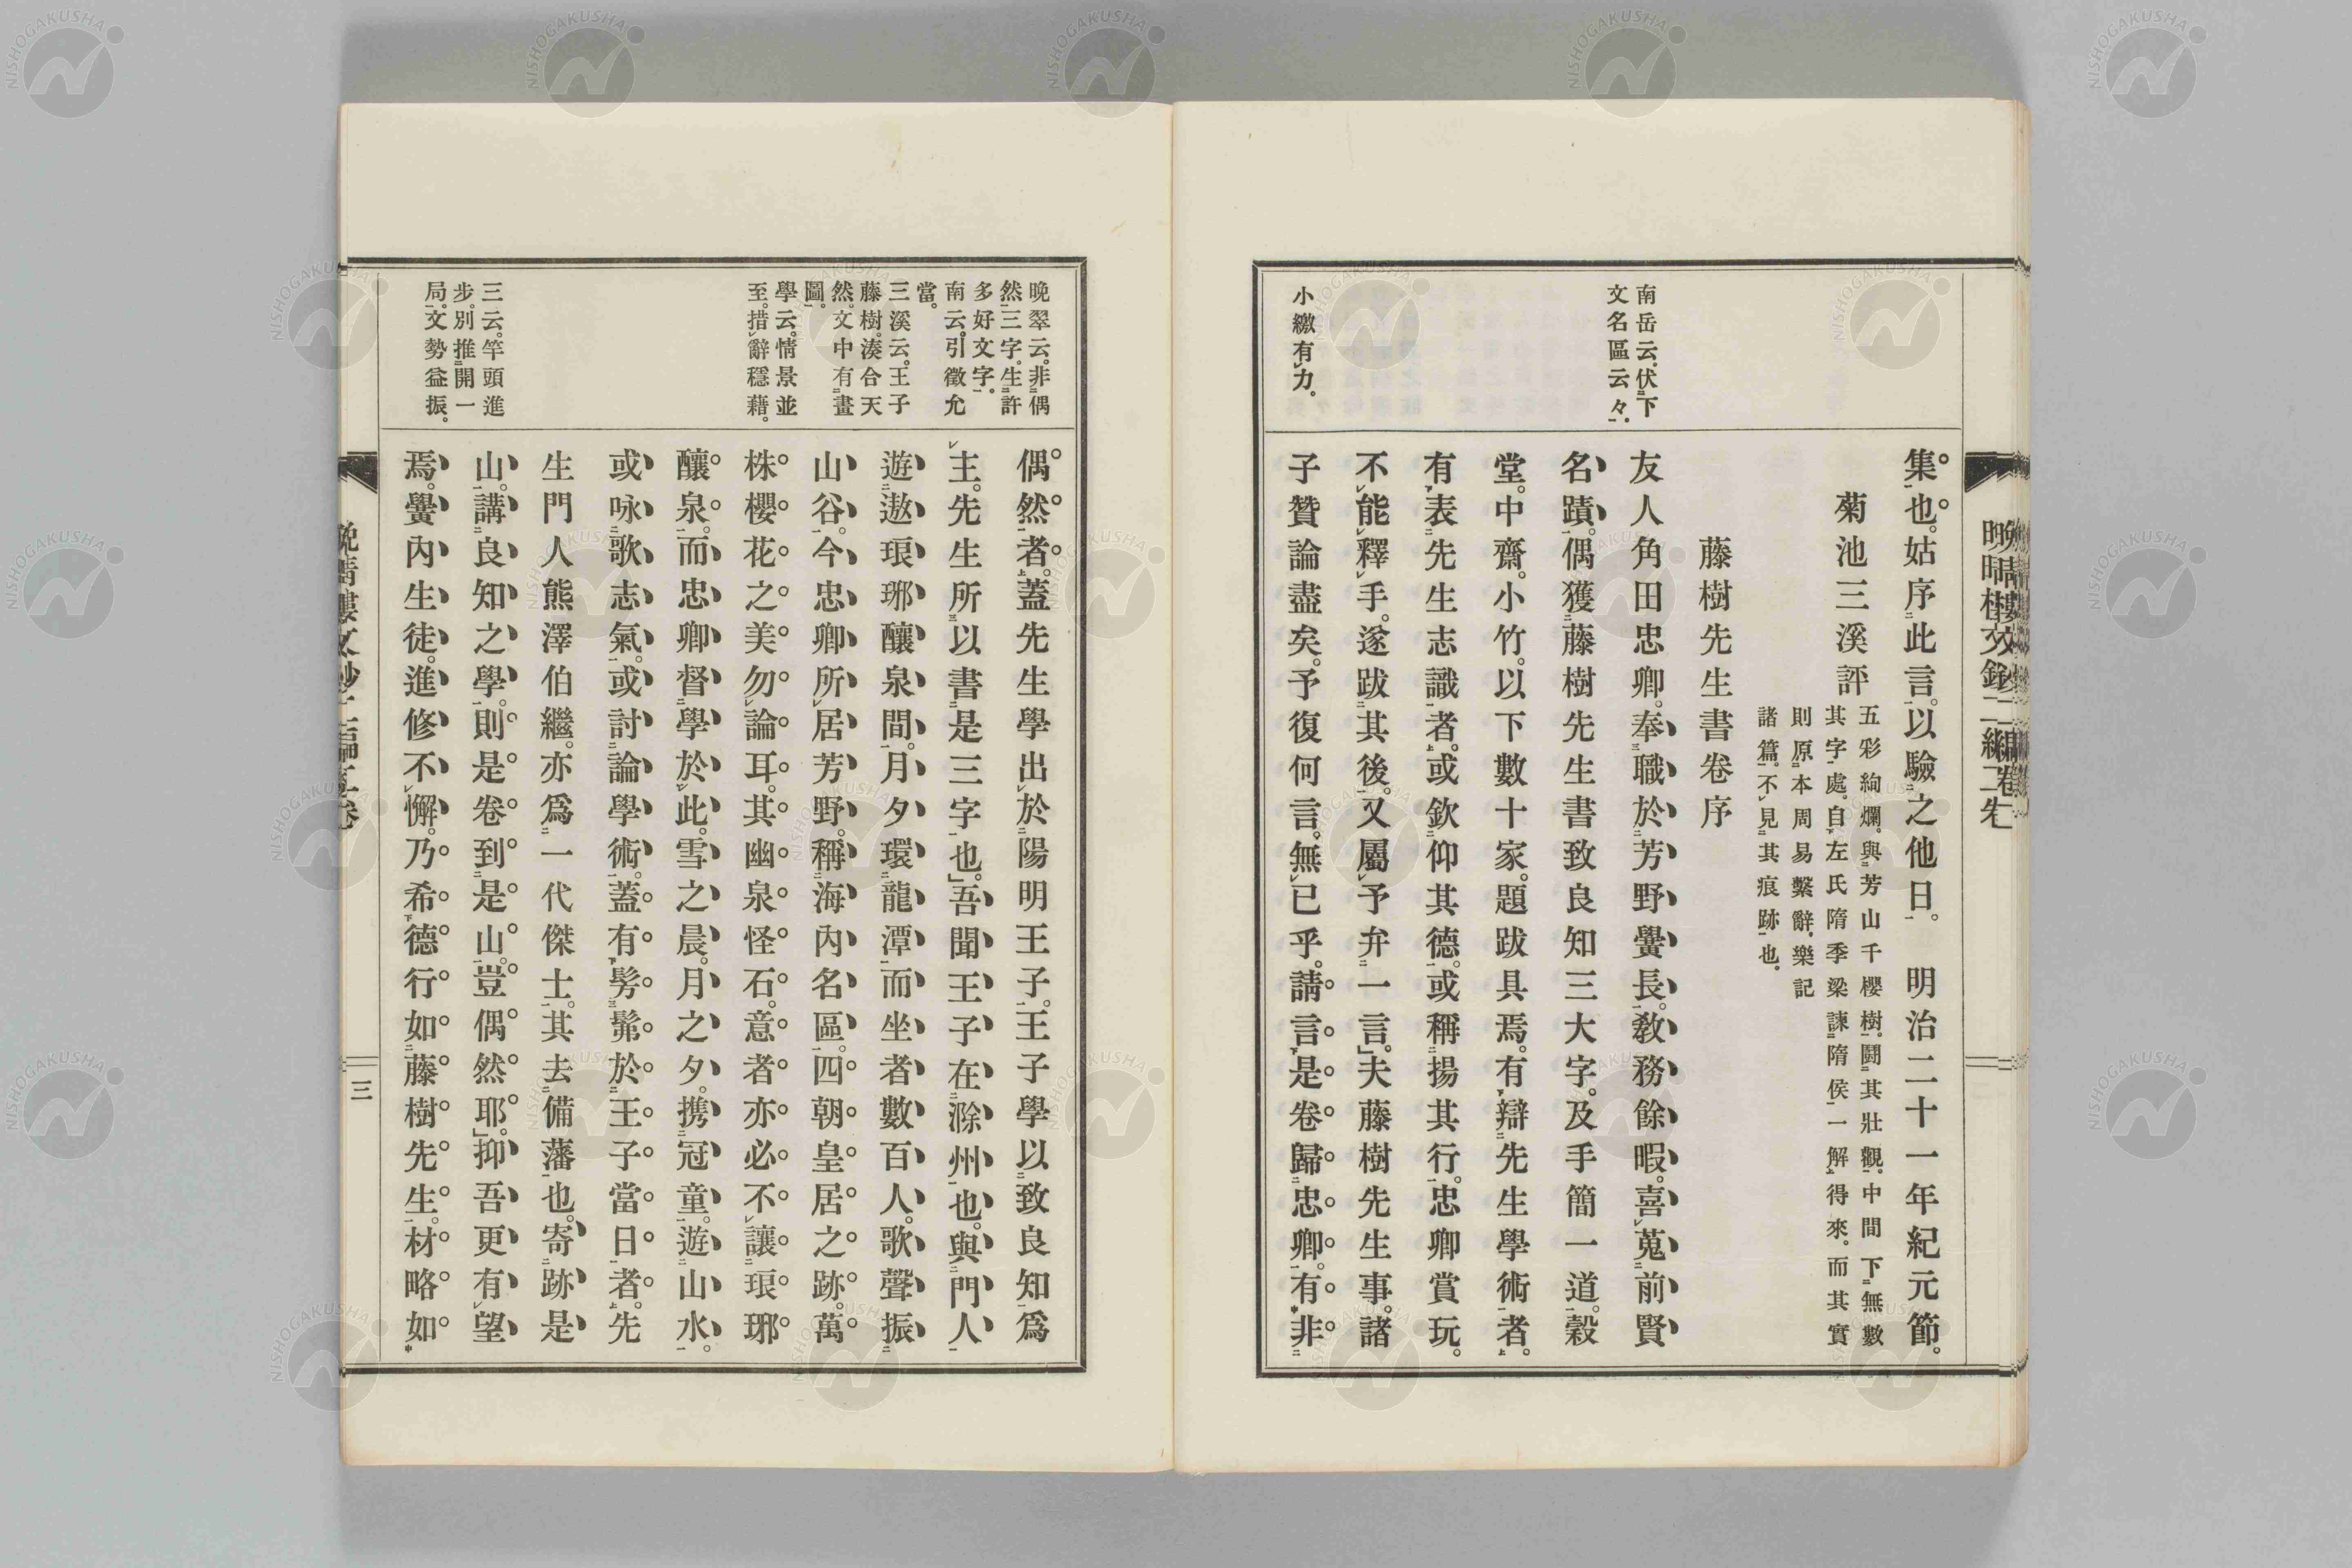 集也。姑序此言。以驗之他日。　明治二十一年紀元節。
菊池三溪評
五彩絢爛。與芳山千櫻樹。鬪其壯觀。中間下無數
其字處。自左氏隋季梁諫隋侯一解得來。而其實
則原本周易繫辭。樂記
諸篇。不見其痕跡也。
藤樹先生書卷序
南岳云。伏下
文名區云々。
友人角田忠卿。奉職於芳野黌長。敎務餘暇。喜蒐前賢
名蹟。偶獲藤樹先生書致良知三大字。及手簡一道。穀
堂。中齋。小竹。以下數十家。題跋具焉。有辯先生學術者。
有表先生志識者。或欽仰其德。或稱揚其行。忠卿賞玩。
不能釋手。遂跋其後。又屬予弁一言。」夫藤樹先生事。諸
小繳有力。
子贊論盡矣。予復何言。無已乎。請言是卷歸忠卿。有非
晩翠云。非偶
然三字。生許
多好文字。
南云。引徵允
當。
三溪云。王子
藤樹。湊合天
然。文中有畫
圖。
學云。情景並
至。措辭穩藉。
三云。竿頭進
步。別推開一
局。文勢益振。
偶然者。蓋先生學出於陽明王子。王子學以致良知爲
主。先生所以書是三字也。」吾聞王子在滁州也。與門人
遊遨琅琊釀泉間。月夕環龍潭而坐者數百人。歌聲振
山谷。今忠卿所居芳野。稱海內名區。四朝皇居之跡。萬
株櫻花之美勿論耳。其幽泉怪石。意者亦必不讓琅琊
釀泉。而忠卿督學於此。雪之晨。月之夕。携冠童。遊山水。
或咏歌志氣。或討論學術。蓋有髣髴於王子當日者。先
生門人熊澤伯繼。亦爲一代傑士。其去備藩也。寄跡是
山。講良知之學。則是卷到是山。豈偶然耶。」抑吾更有望
焉。黌內生徒。進修不懈。乃希德行如藤樹先生。材略如
三